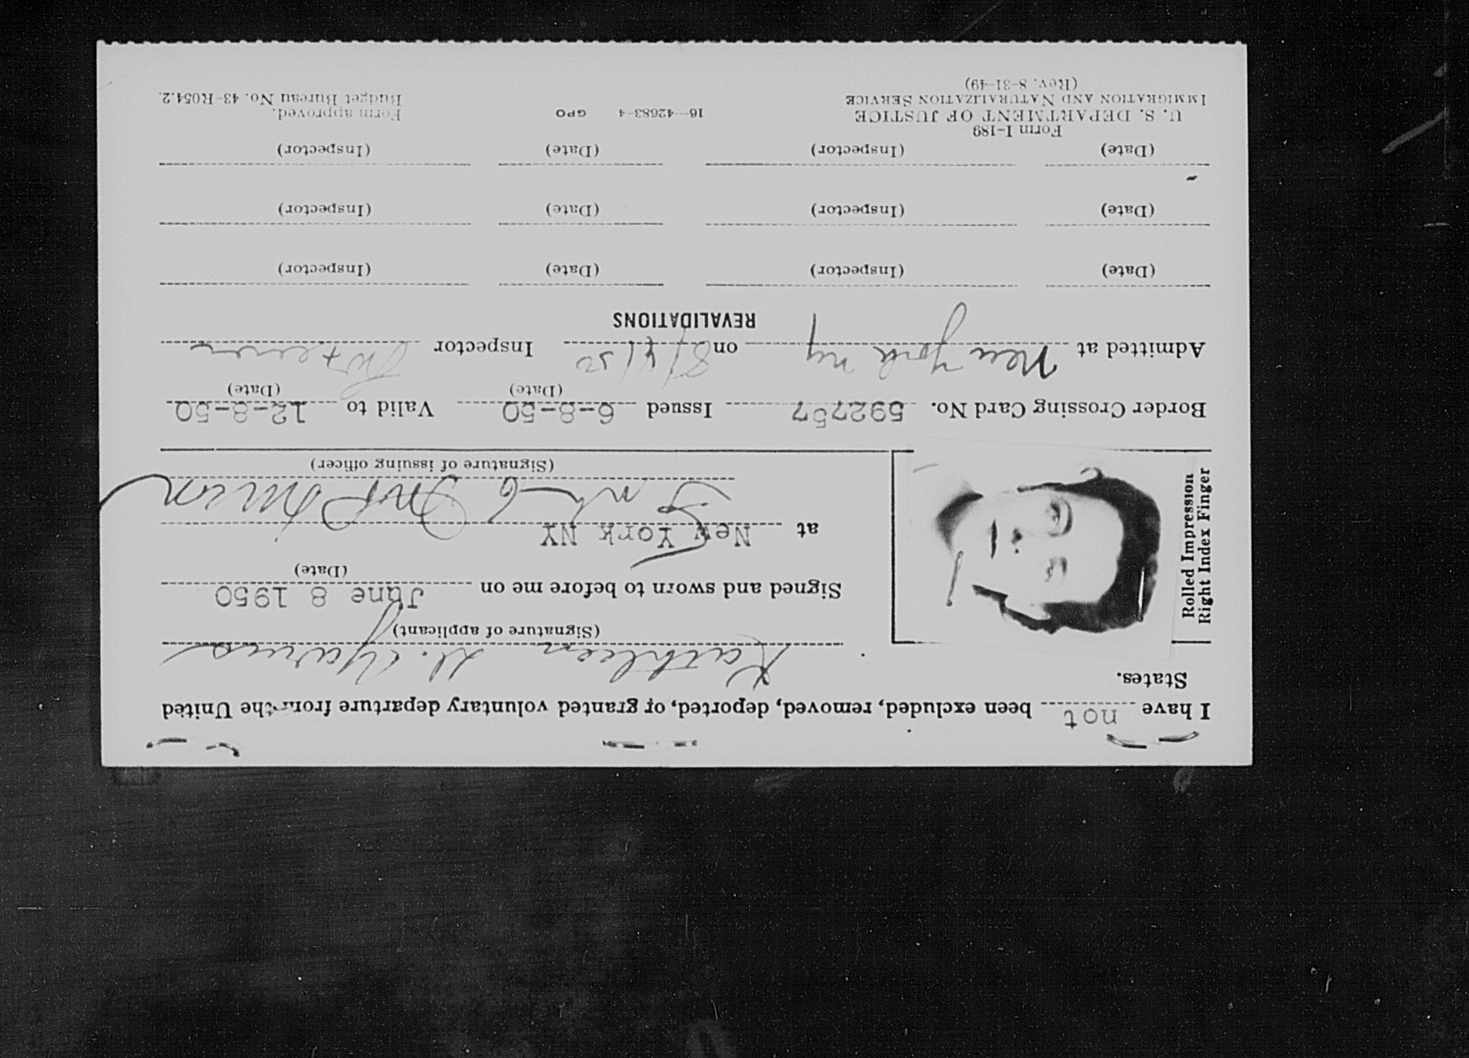 I have not been excluded, removed, deported, or granted voluntary departure from the United
States.
Kathleen
(Signature of applicant)
Rolled Impression
Right Index Finger
Signed and sworn to before me on June 8 1950
(Date)
at New York NY
(Signature of issuing officer)
Border Crossing Card No. 592757 Issued 6-8-50 Valid to 12-8-50
(Date) (Date)
Admitted at New York NY on 8/4/50 Inspector
REVALIDATIONS
(Date) (Inspector) (Date) (Inspector)
(Date) (Inspector) (Date) (Inspector)
(Date) (Inspector) (Date) (Inspector)
Form I-189
U. S. DEPARTMENT OF JUSTICE
IMMIGRATION AND NATURALIZATION SERVICE
(Rev. 8-31-49)
16—42683-4 GPO
Form approved.
Budget Bureau No. 43-R054.2.